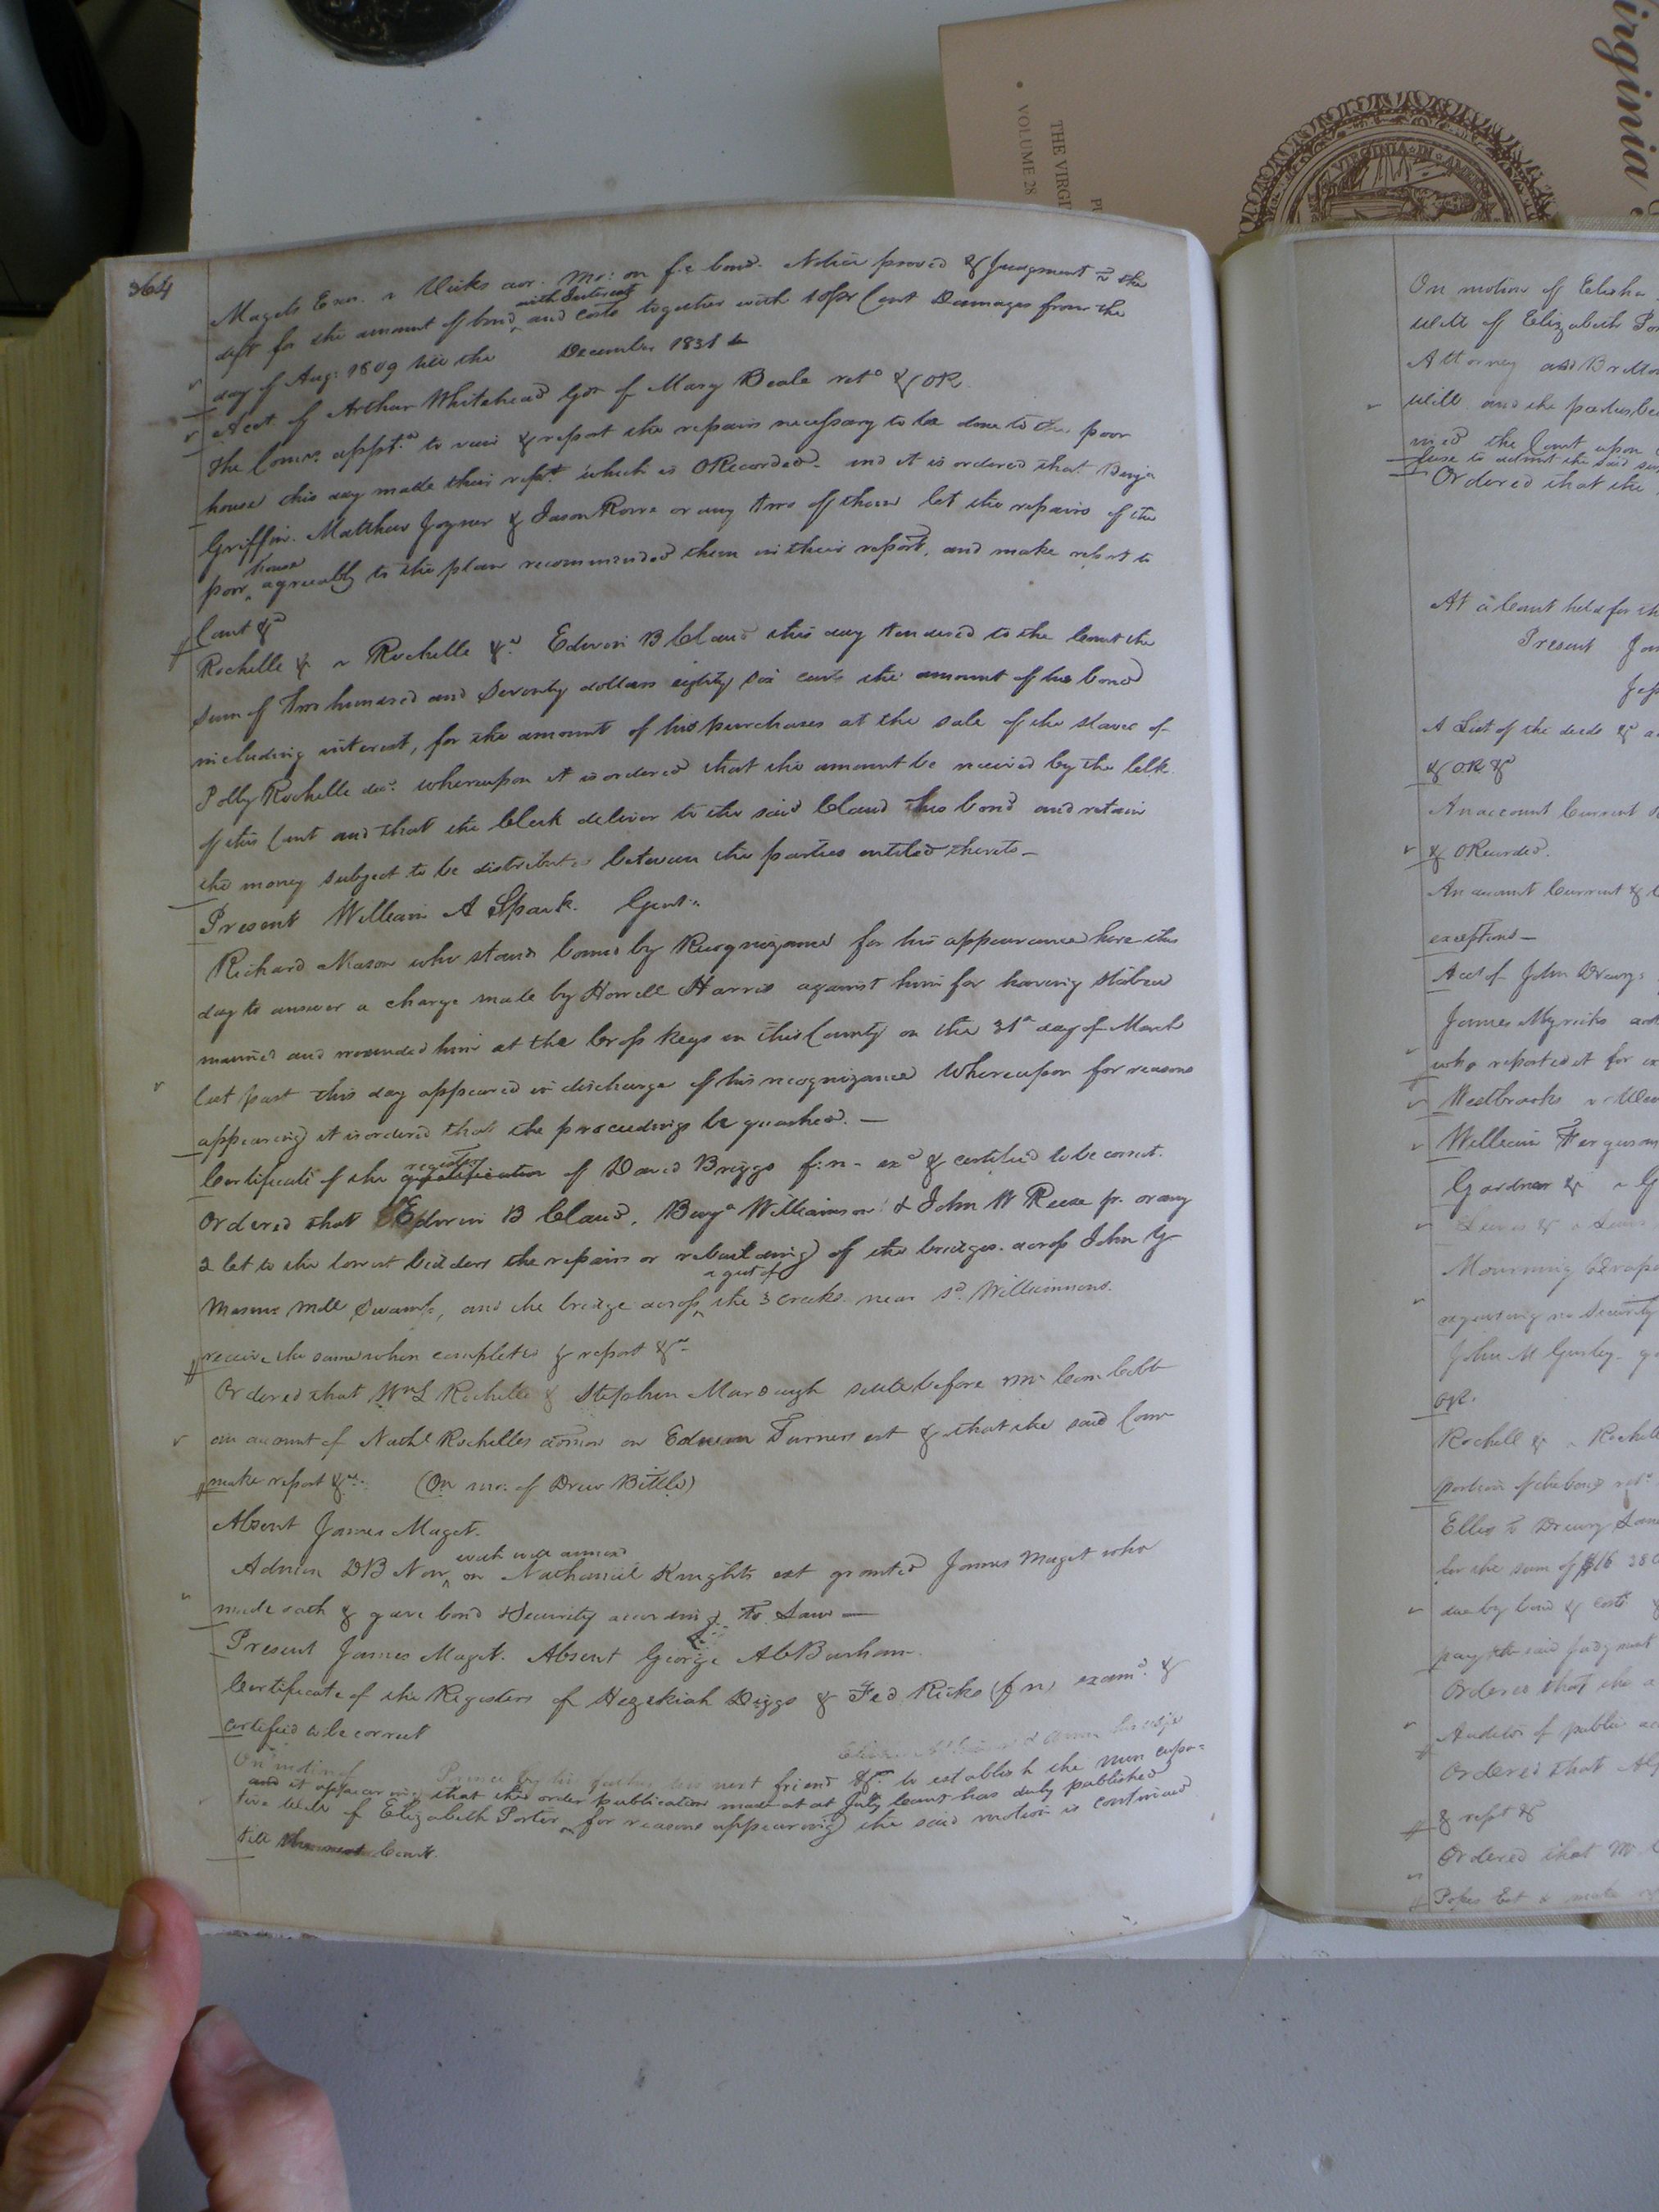 364
Magets Exor. v Ricks adr. Mo: on f.c bond. Notice proved & Judgment v the
deft for the amount of bond with Interest and costs together with 10 pr Cent Damages from the
day of Aug: 1809 till the December 1831 &
Acct. of Arthur Whitehead Gdn of Mary Beale retd & OR.
The Comrs. apptd. to view & report the repairs necessary to be done to the poor
house this day made their rept. which is ORecorded. and it is ordered that Benja
Griffin. Matthew Joyner & Jason Rowe or any two of them let the repairs of the
poor house agreeably to the plan recommended them in their report, and make report to
Court &c
Rochelle & v Rochelle &c. Edwin B Claud this day tendered to the Court the
sum of two hundred and Seventy dollars eighty six cents the amount of his bond
including interest, for the amount of his purchases at the sale of the slaves of
Polly Rochelle decd. whereupon it is ordered that the amount be received by the Clk.
of this Court and that the Clerk deliver to the said Claud his bond and retain
the money subject to be distributed between the parties entitled thereto—
Present William A Spark. Gent.
Richard Mason who stands bound by Recognizance for his appearance here this
day to answer a charge made by Howell Harris against him for having stabed
maimed and wounded him at the Cross Keys in this County on the 31st day of March
last past this day appeared in discharge of his recognizance Whereupon for reasons
appearing it is ordered that the proceedings be quashed.—
Certificate of the register qualification of David Briggs f:n- exd & certified to be correct.
Ordered that Edwin B Claud, Benja Williamson & John W Reese jr. or any
2 let to the lowest bidders the repairs or rebuilding of the bridges. across John Y
Masons mill Swamp, and the bridge across a gut of the 3 creeks near sd. Williamsons.
receive the same when completed & report &c
Ordered that Wm L Rochelle & Stephen Murdaugh settle before Mr Com Cobb
an account of Nathl Rochelles admon on Edwin Turners est & that the said Com
make report &c. (On mo. of Drew Bittle)
Absent James Maget.
Admion DB Non with will annexd on Nathaniel Knights est granted James Maget who
made oath & gave bond & Security according To Law—
Present James Maget. Absent George A W Burham.
Certificate of the Registers of Hezekiah Diggs & Fed. Ricks (f n) examd. &
certified to be correct
On motion of
Prince by his father his next friend &c. to establish the Nun cupa=
and it appearing that the order publication made at at July Court has duly published
tive will of Elizabeth Porter for reasons appearing the said motion is continued
till the next Court.
On motion of Elisha
will of Elizabeth Por
Attorney and Britton
will and the parties be
the Court upon
fuse to admit the said
Ordered that the
At a Court held for th
Present
A List of the deeds & a
& OR &c
An account Current
& ORecorded.
An account Current &
exceptions—
Acct of John Drewry
James Myricks
who reported it for ex
Westbrooks v
William Ferguson
Gardner & v G
Mourning
requiring no Security
John M Gurley
OR.
Rochell & v Rochell
portion of the bond
Ellis v Drewry
for the sum of $16 380
due by bond & costs
pay the said Judgment
Ordered that the a
Auditor of public ac
Ordered that
& rept &c
Ordered that
THE VIRGI
VOLUME 28
irginia
VIRGINIA·IN·AMERICA